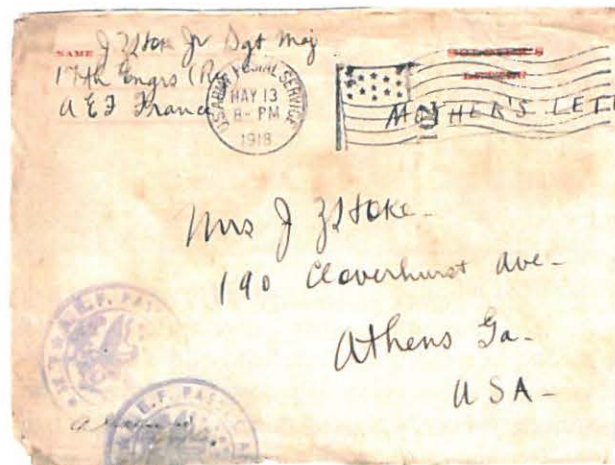 NAME J Z Hoke Jr Sgt Maj
17th Engrs (Ry
A E F France
U.S. ARMY POSTAL SERVICE
MAY 13
8- PM
1918
SOLDIER'S
LETTER
MOTHER'S LET
Mrs J Z Hoke-
190 Cloverhurst Ave-
Athens Ga-
USA-
A.E.F. PASSED
A.E.F. PASSED